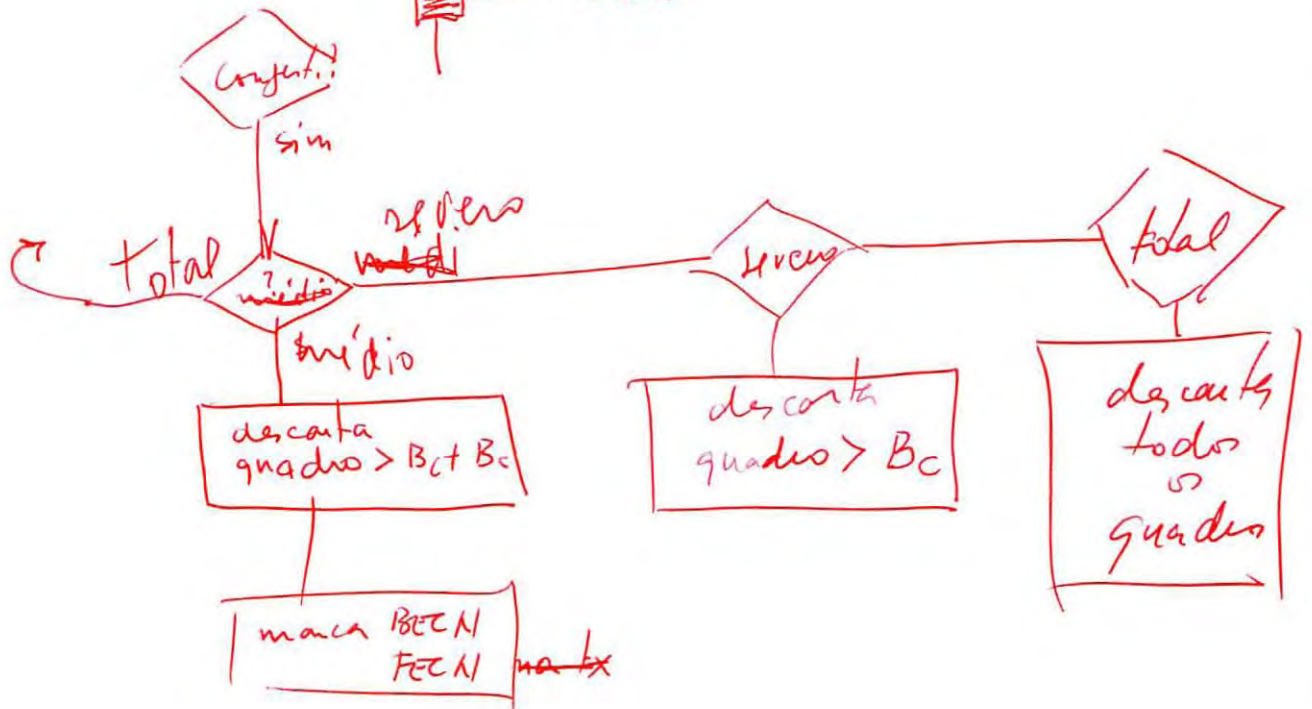 Congest.?
sim
total
severo
médio
médio
severo
total
descarta
quadro > Bc + Bc
descarta
quadro > Bc
descartes
todos
os
quadros
marca BECN
FECN
na tx